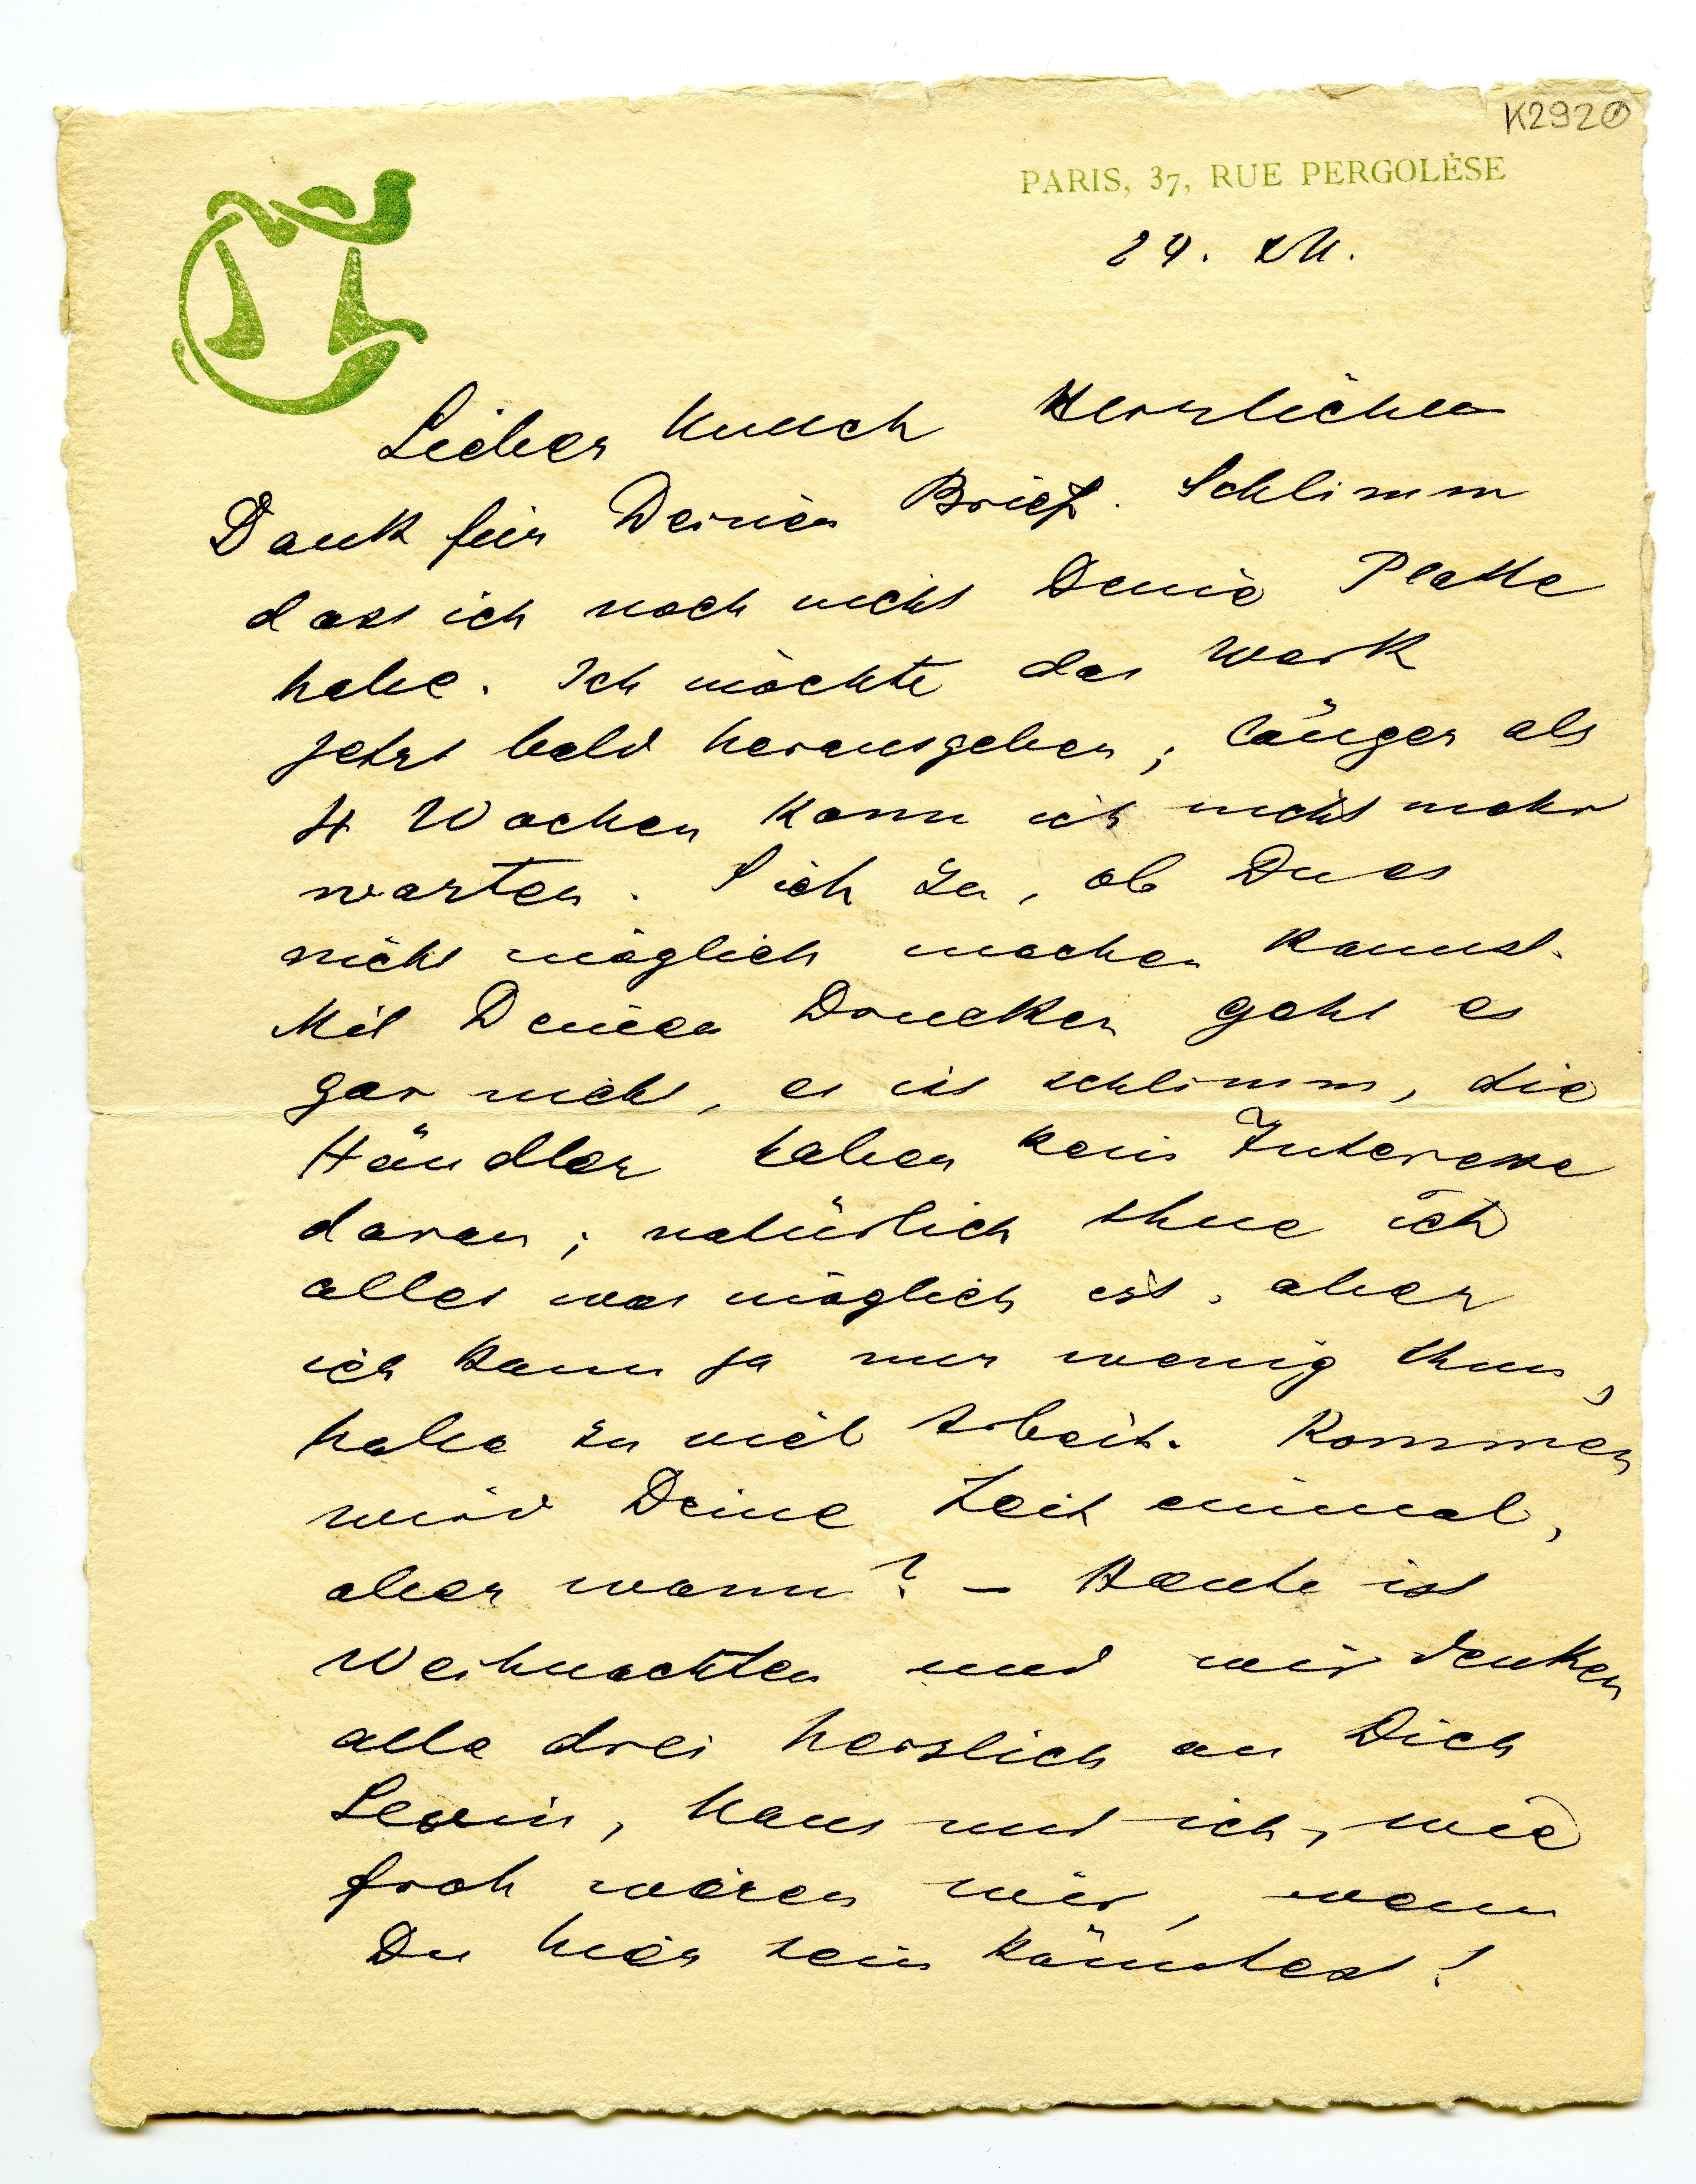 K292
PARIS, 37, RUE PERGOLÈSE
24. XII.
Lieber Munch Herzlichen
Dank für Deinen Brief. Schlimm
dass ich noch nicht Deine Platte
habe. Ich möchte das Werk
jetzt bald herausgeben; länger als
4 Wochen kann ich nicht mehr
warten. Sieh zu, ob Du es
nicht möglich machen kannst.
Mit Deinen Drucken geht es
gar nicht, es ist schlimm, die
Händler haben kein Interesse
daran; natürlich thue ich
alles was möglich ist, aber
ich kann ja nur wenig thun,
habe zu viel Arbeit. Kommen
wird Deine Zeit einmal,
aber wann? – Heute ist
Weihnachten und wir denken
alle drei herzlich an Dich
Levin, Haus und ich, wie
froh wären wir, wenn
Du hier sein könntest!